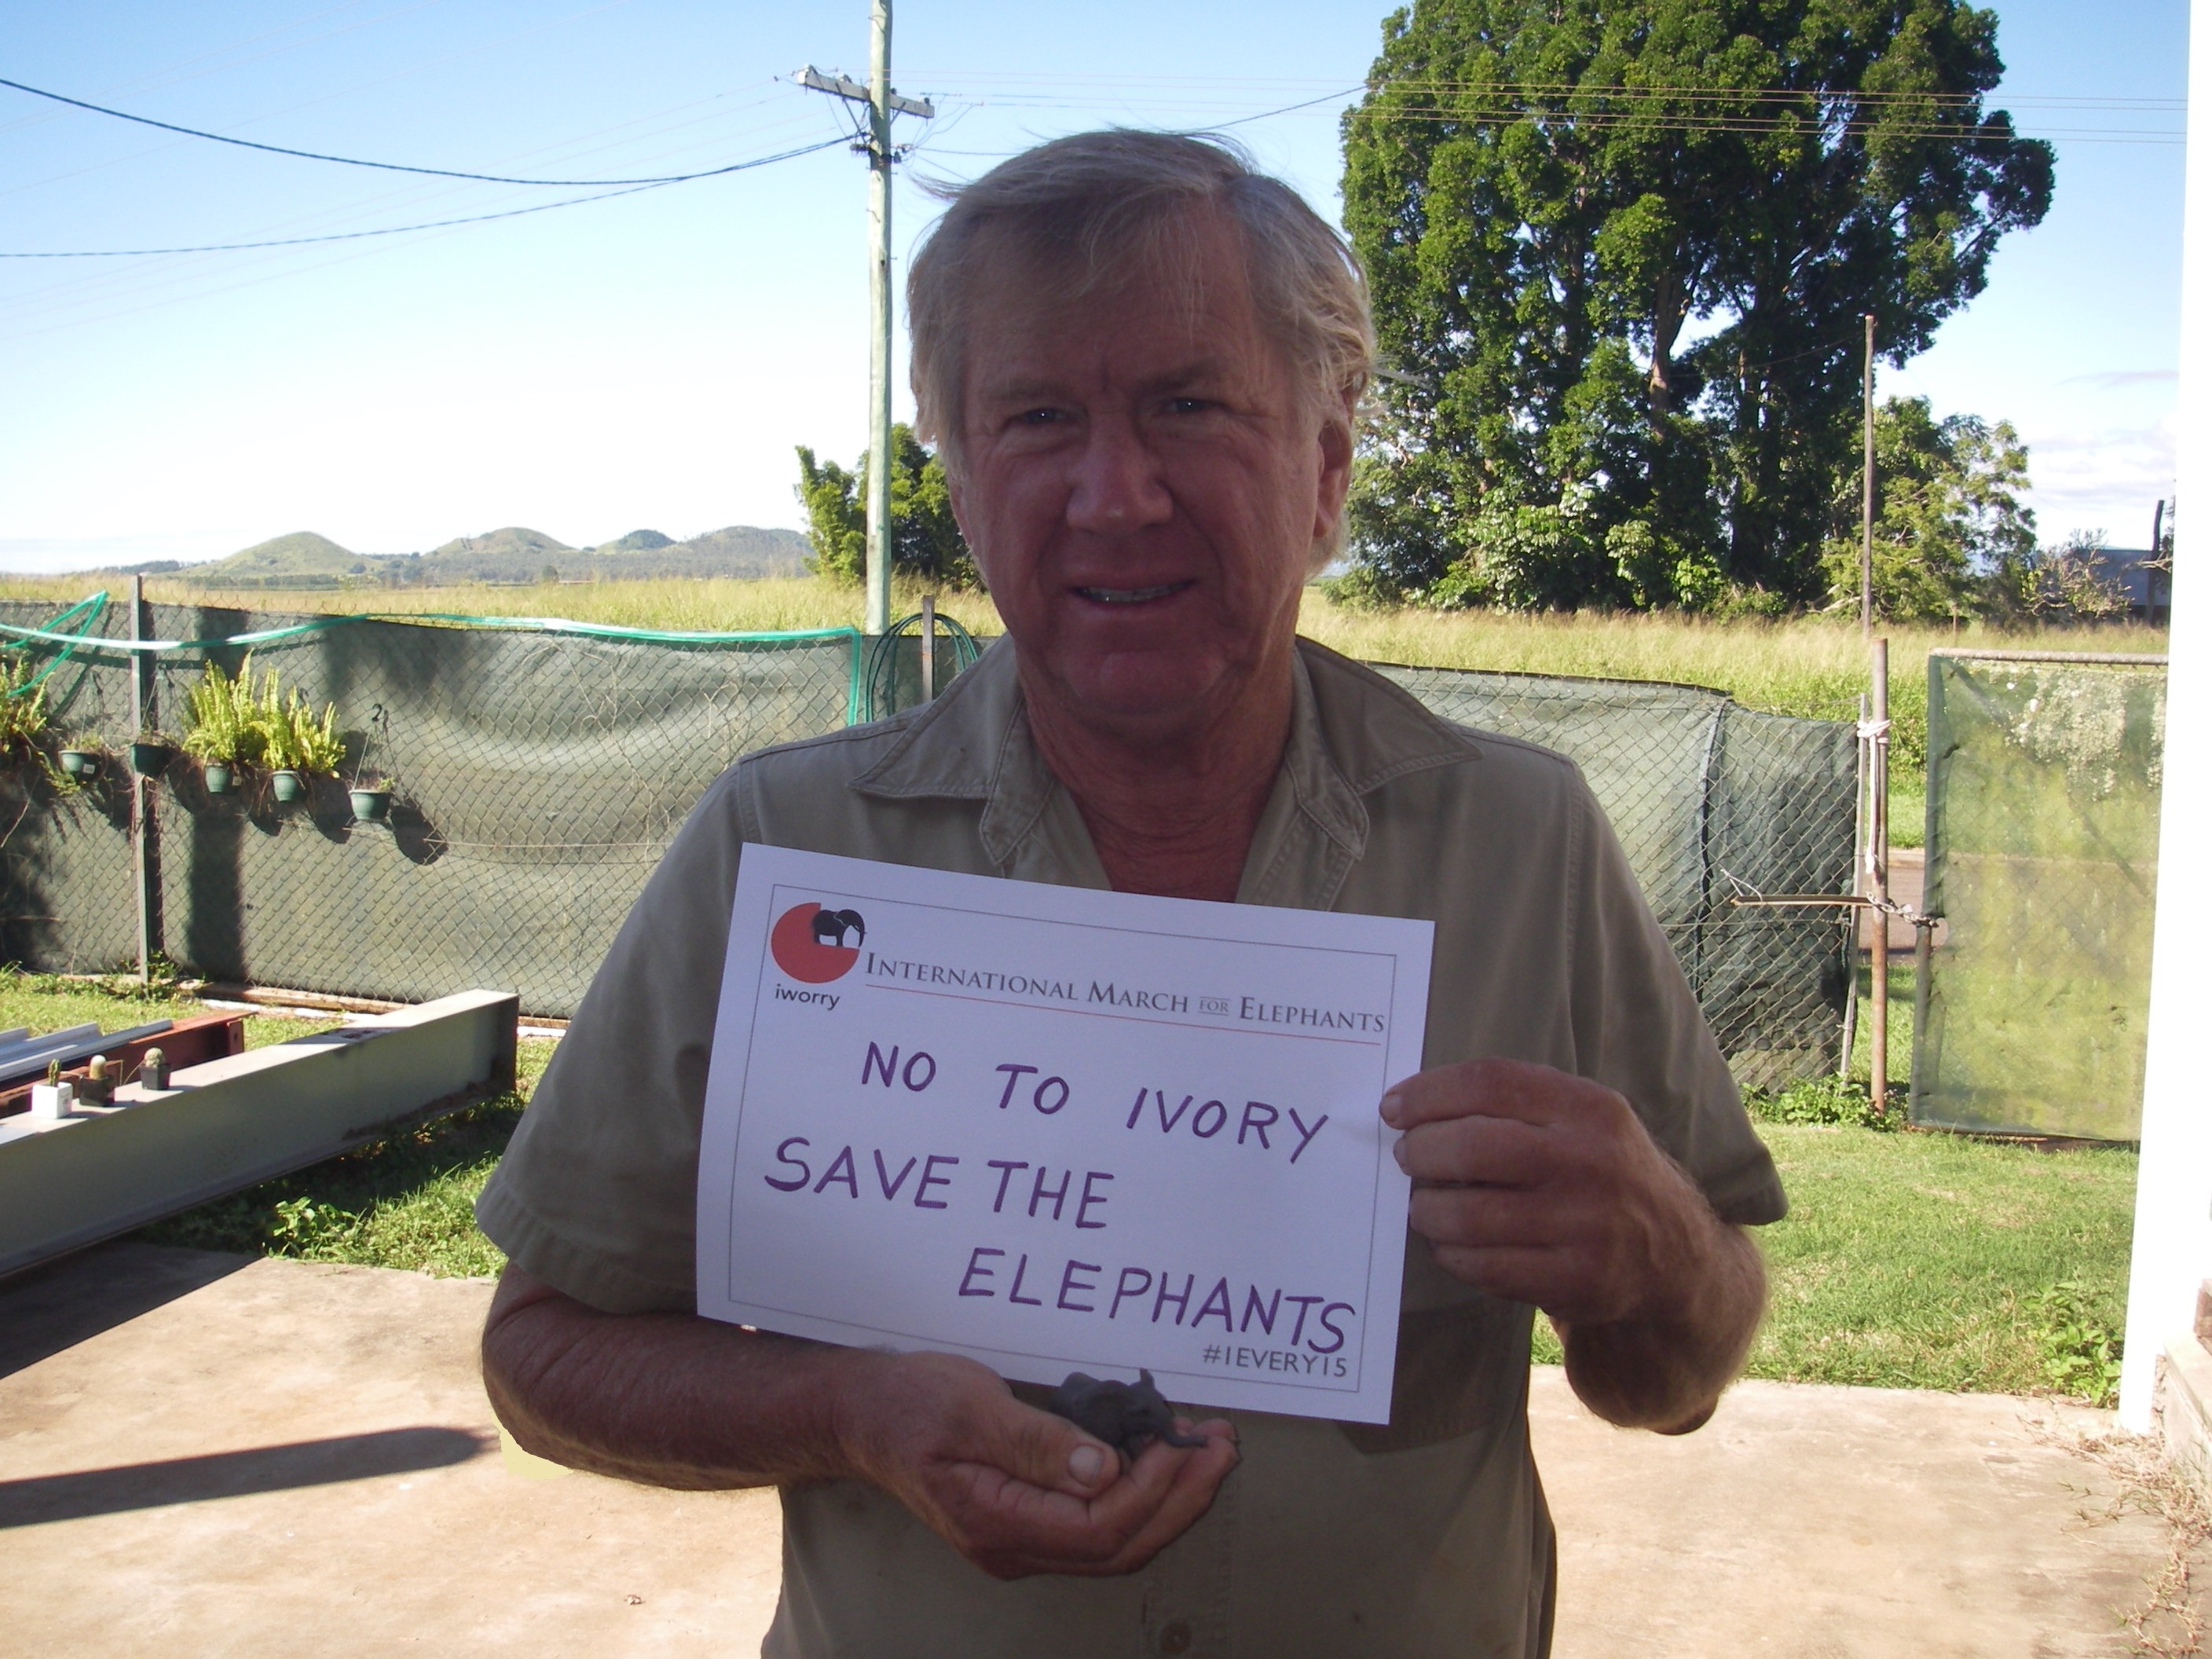 iworry
INTERNATIONAL MARCH FOR ELEPHANTS
NO TO IVORY
SAVE THE
ELEPHANTS
#1EVERY15